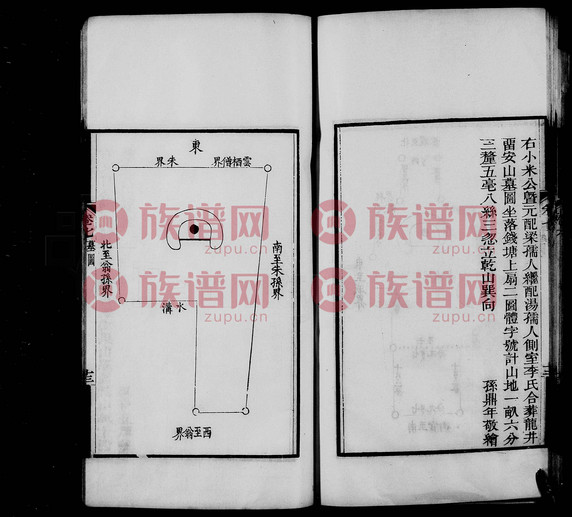 右小米公暨元配梁孺人繼配湯孺人側室李氏合葬龍井
畱安山墓圖坐落錢塘上扇一圖體字號計山地一畝六分
三釐五毫八絲三忽立乾山巽向
孫鼎年敬繪
十三
東
雲栖僧界
朱界
南至朱孫界
水溝
北至翁孫界
西至翁界
卷七
墓圖
十三
族谱网
zupu.cn
族谱网
zupu.cn
族谱网
zupu.cn
族谱网
zupu.cn